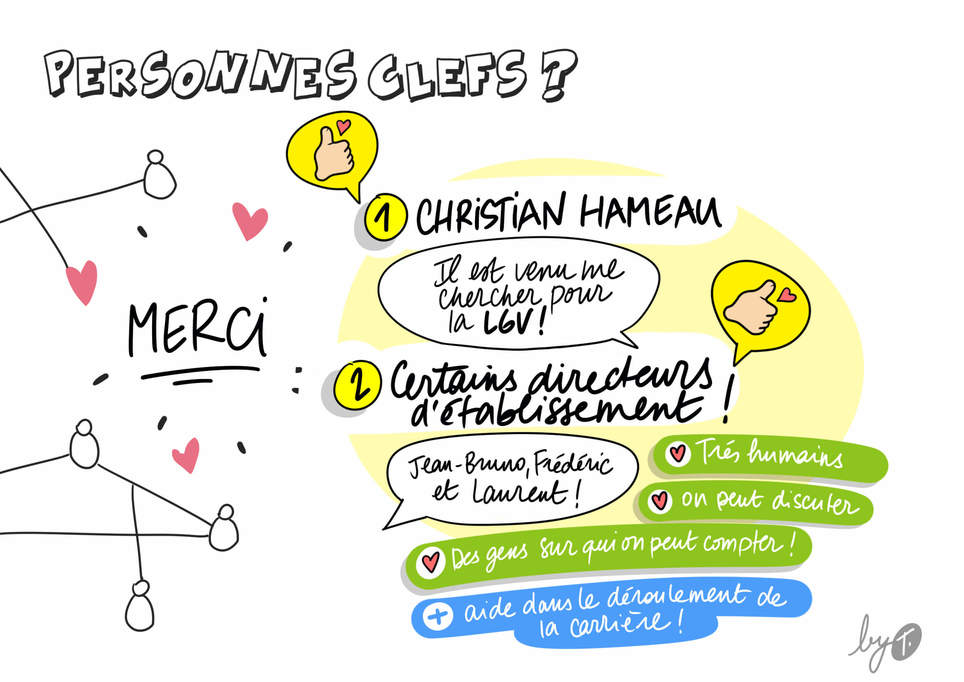 PERSONNES CLEFS ?
1 CHRISTIAN HAMEAU
Il est venu me
chercher pour
la LGV !
MERCi :
2 Certains directeurs
d'établissement !
Jean-Bruno, Frédéric
et Laurent !
Trés humains
on peut discuter
Des gens sur qui on peut compter !
+ aide dans le déroulement de
la carrière !
by T.